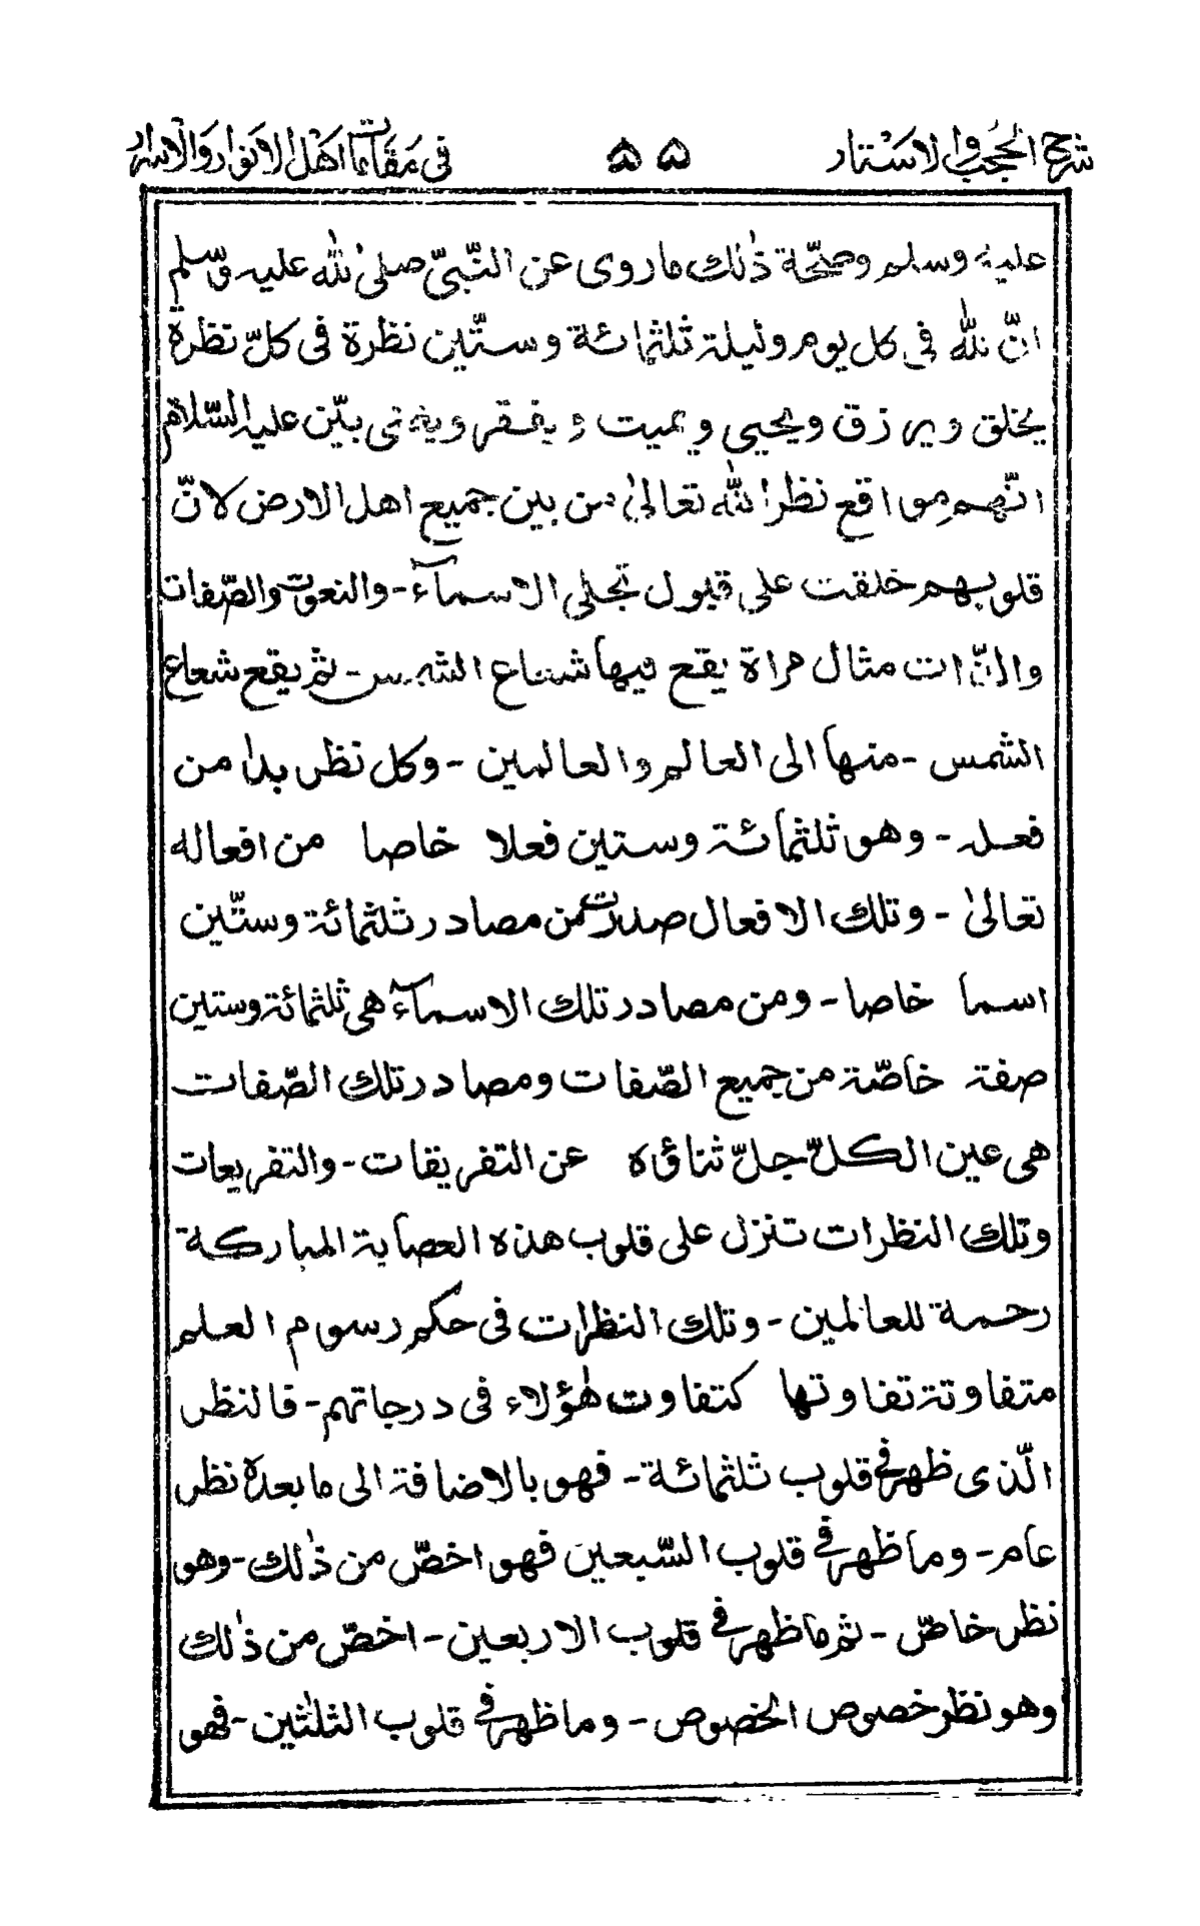 شرح الحُجب والاسْتار ۵۵ فى مَقَامَات اهْل الانوَار وَالاسرار
عليه وسلم وصحّة ذٰلك ما روى عن النّبىّ صلى الله عليه وسلم
انّ لله فى كل يوم وليلة ثلثمائة وستّين نظرة فى كلّ نظرة
يخلق ويرزق ويحيى ويميت و يفقر ويغنى بيّن عليه السّلام
انّهم مواقع نظر الله تعالىٰ من بين جميع اهل الارض لانّ
قلوبهم خلقت على قبول تجلى الاسمآء - والنعوت والصّفات
والذّات مثال مراة يقع فيها شعاع الشمس - ثم يقع شعاع
الشمس - منها الى العالم والعالمين - وكل نظر بدا من
فعله - وهو ثلثمائة وستين فعلا خاصا من افعاله
تعالىٰ - وتلك الافعال صدرت من مصادر ثلثمائة وستّين
اسما خاصا - ومن مصادر تلك الاسمآء هى ثلثمائة وستين
صفة خاصّة من جميع الصّفات ومصادر تلك الصّفات
هى عين الكلّ جلّ ثناؤه عن التفريقات - والتفريعات
وتلك النظرات تنزل على قلوب هذه العصابة المباركة
رحمة للعالمين - وتلك النظرات فى حكم رسوم العلم
متفاوتة تفاوتها كتفاوت هٰؤلاء فى درجاتهم - فالنظر
الّذى ظهر فى قلوب ثلثمائة - فهو بالاضافة الى ما بعده نظر
عام - وما ظهر فى قلوب السّبعين فهو اخصّ من ذٰلك - وهو
نظر خاصّ - ثم ما ظهر فى قلوب الاربعين - اخصّ من ذٰلك
وهو نظر خصوص الخصوص - وما ظهر فى قلوب الثلٰثين - فهو